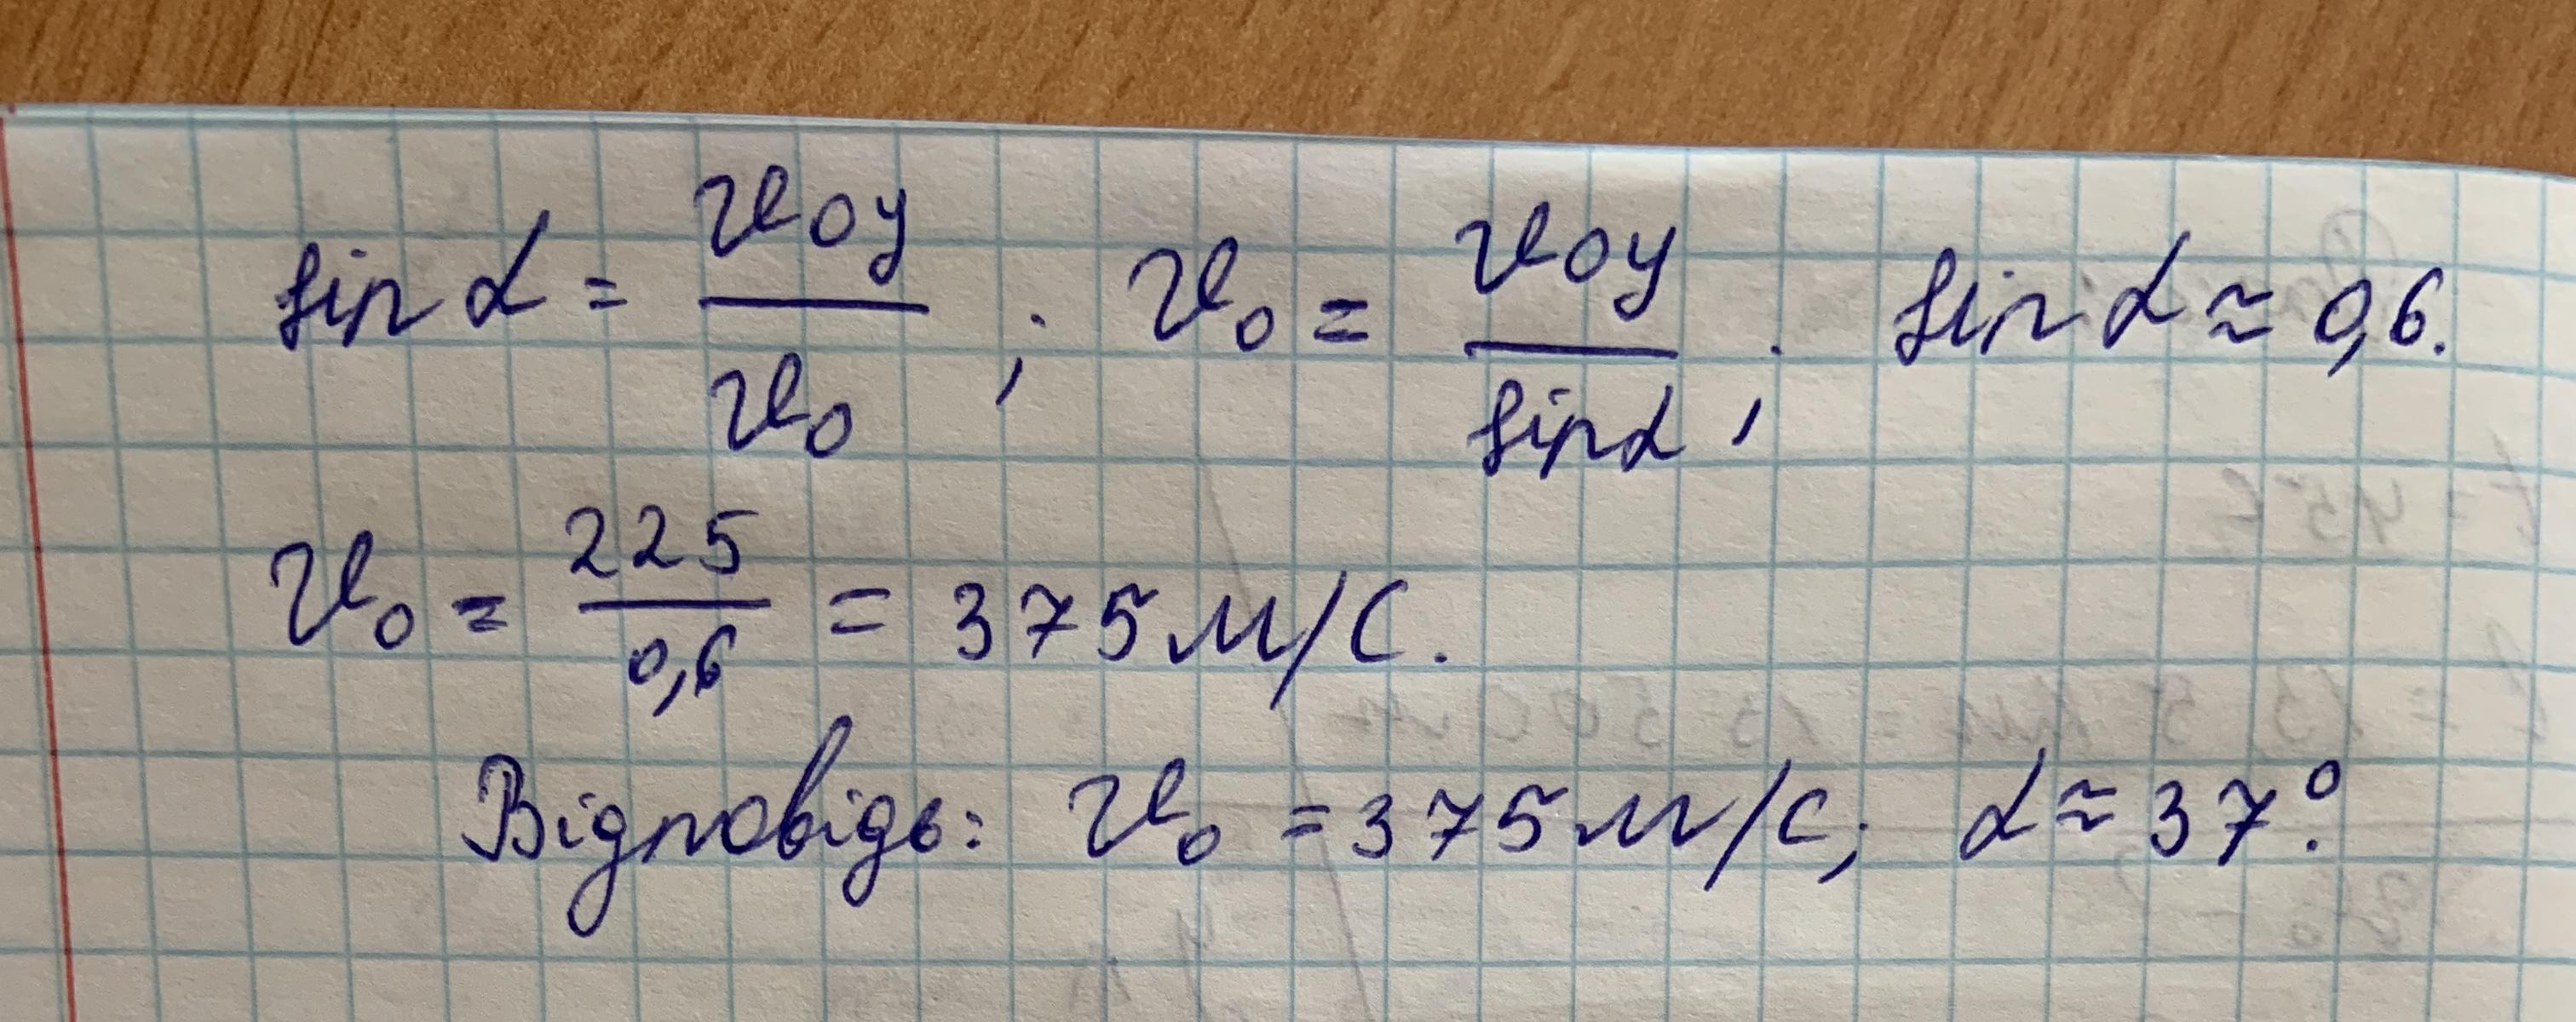 sin α = v₀y / v₀ ; v₀ = v₀y / sin α ; sin α ≈ 0,6.
v₀ = 225 / 0,6 = 375 м/с.
Відповідь: v₀ = 375 м/с; α ≈ 37°.